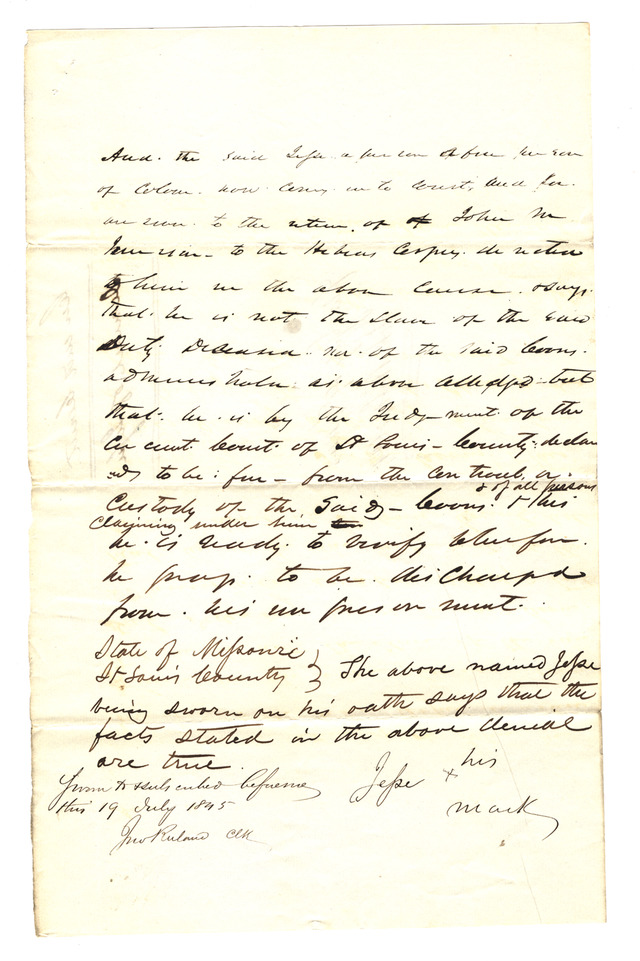 And. the said Jesse a person of free person
of Colour. now comes in to Court, and for
answer. to the return. of John M
Jamerson - to the Habeas Corpus. directed
to him in the above cause. & says.
that. he is not the slave of the said
Duty Deceased. nor of the said Coons.
administrator as above alledged - but
that. he. is by the Judg-ment of the
Circuit Court of St Louis - County declar
ed to be: free - from the controul. or
& of all persons
Custody of the said - Coons. & this
Claiming under him
he. is ready. to verify Wherefore.
he prays. to be. discharged
from. his imprisonment.
State of Missouri
St Louis County } The above named Jesse
being sworn on his oath says that the
facts stated in the above denial
are true.
Sworn to & subscribed before me
this 19 July 1845
Jno Ruland Clk
his
Jesse x
mark